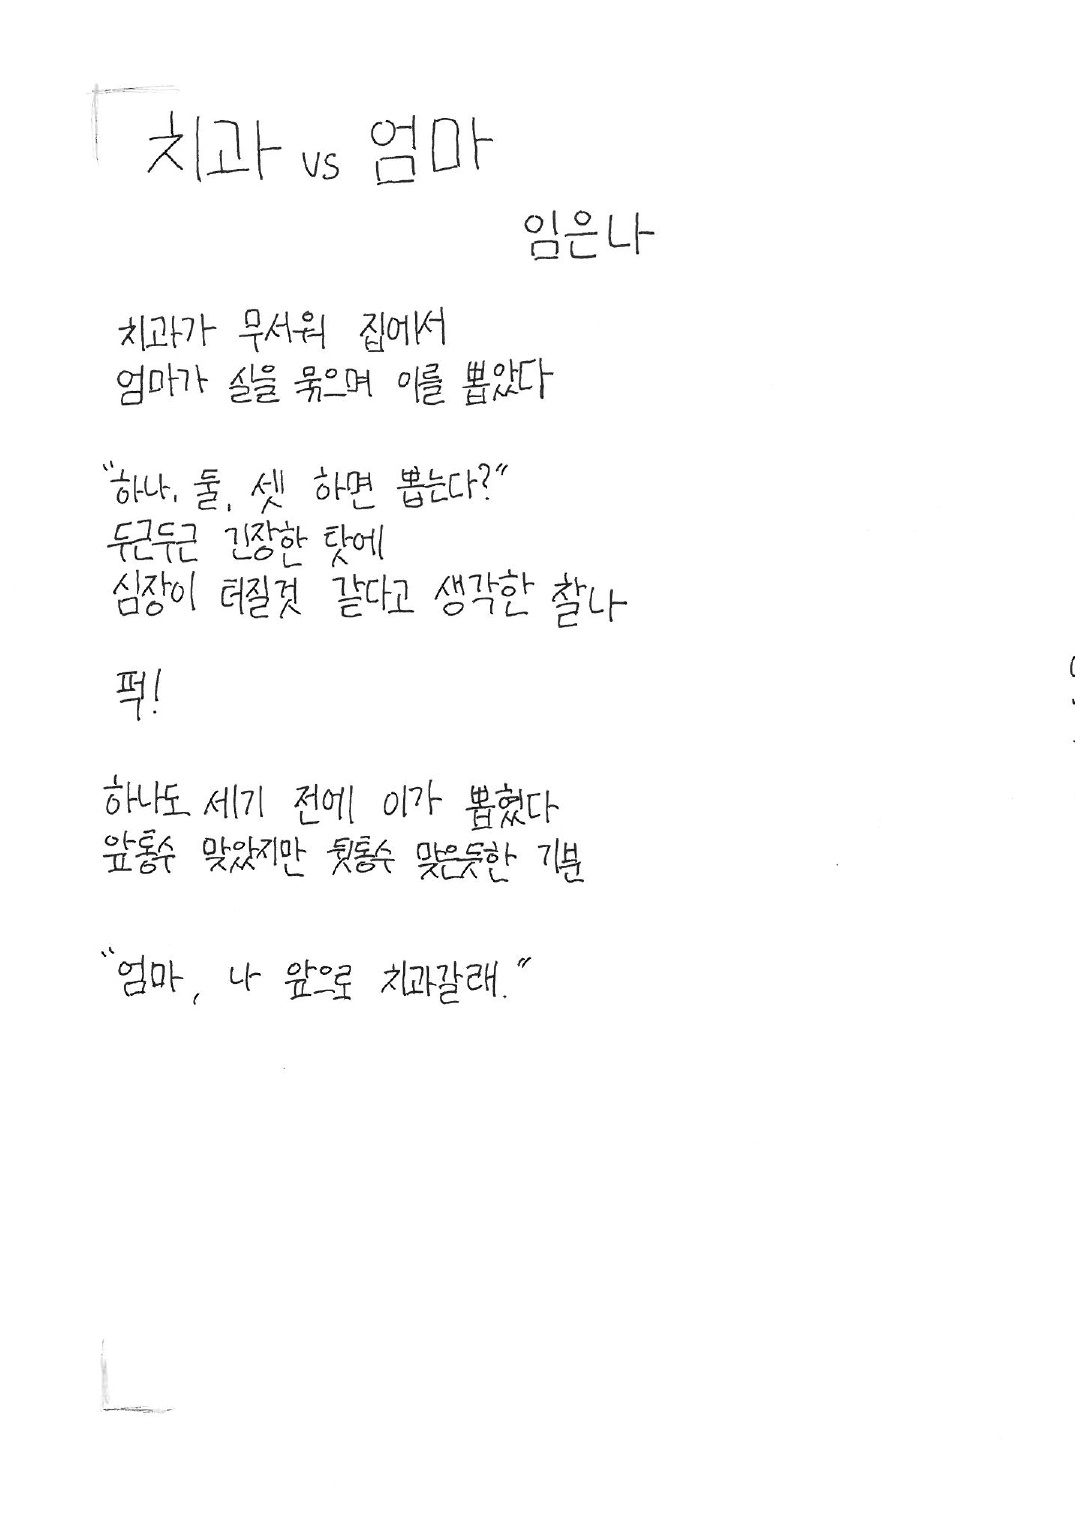 치과 vs 엄마
임은나
치과가 무서워 집에서
엄마가 실을 묶으며 이를 뽑았다
"하나, 둘, 셋 하면 뽑는다?"
두근두근 긴장한 탓에
심장이 터질것 같다고 생각한 찰나
퍽!
하나도 세기 전에 이가 뽑혔다
앞통수 맞았지만 뒷통수 맞은듯한 기분
"엄마, 나 앞으로 치과갈래."